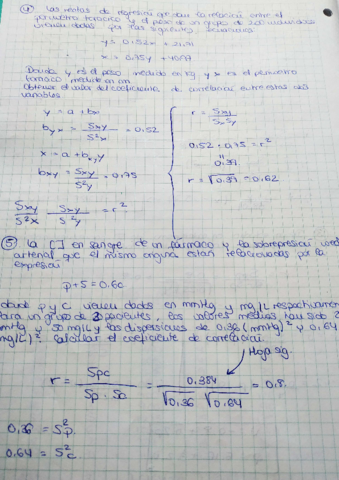 ④ Las rectas de regresión que dan la relación entre el
perímetro torácico y el peso de un grupo de 200 individuos
vienen dadas por las siguientes ecuaciones:
y = 0.52x +
x = 0.75y +
Donde y es el peso medido en Kg y x es el perímetro
torácico medido en cm
Obtener el valor del coeficiente de correlación entre estas dos
variables.
y = a + bx
byx = Sxy / S²x = 0.52
x = a + bx,y
bxy = Sxy / S²y = 0.75
Sxy / S²x Sxy / S²y = r²
r = Sxy / Sx Sy
0.52 · 0.75 = r²
"
0.39
r = √0.39 = 0.62
⑤ La [ ] en sangre de un fármaco y la sobrepresión
arterial que el mismo origina están relacionadas por la
expresión
p + 5 = 0.6c
donde p y c vienen dados en mmHg y mg/L respectivamen
Para un grupo de 3 pacientes, los valores medios han sido 2
mmHg y 50 mg/L y las dispersiones de 0.36 (mmHg)² y 0.64
mg/L)². Calcular el coeficiente de correlación.
Hoja sig.
r = Spc / Sp · Sc = 0.384 / √0.36 √0.64 = 0.8
0.36 = S²p
0.64 = S²c